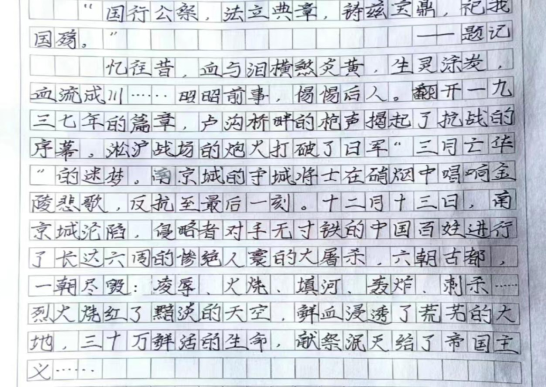 “国行公祭，法立典章，铸兹宝鼎，祀我
国殇。”——题记
忆往昔，血与泪横煞炎黄，生灵涂炭，
血流成川……昭昭前事，惕惕后人。翻开一九
三七年的篇章，卢沟桥畔的枪声揭起了抗战的
序幕，淞沪战场的炮火打破了日军“三月亡华
”的迷梦。南京城的守城将士在硝烟中唱响金
陵悲歌，反抗至最后一刻。十二月十三日，南
京城沦陷，侵略者对手无寸铁的中国百姓进行
了长达六周的惨绝人寰的大屠杀，六朝古都，
一朝尽毁：凌辱、火烧、填河、轰炸、刺杀……
烈火烧红了黯淡的天空，鲜血浸透了荒芜的大
地，三十万鲜活的生命，献祭泯灭给了帝国主
义……